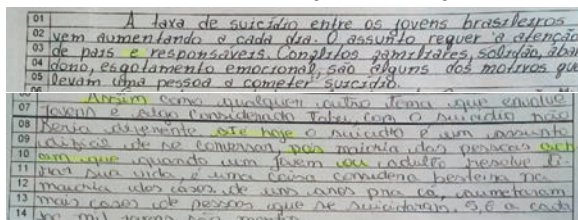 01 A taxa de suicídio entre os jovens brasileiros
02 vem aumentando a cada dia. O assunto requer a atenção
03 de pais e responsáveis. Conflitos familiares, solidão, aban
04 dono, esgotamento emocional, são alguns dos motivos que
05 levam uma pessoa a cometer suicídio.
Assim como qualquer outro tema que envolve
07 jovens é algo considerado Tabu, com o suicídio não
08 seria diferente até hoje o suicídio é um assunto
09 difícil de se conversar, pois maioria das pessoas ach
10 am que quando um jovem ou adulto resolve ti
11 rar sua vida, é uma coisa besteira na
12 maioria dos casos. de uns anos pra cá, aumentaram
13 mais casos de pessoas que se suicidaram 5,6 a cada
14 mil jovens são